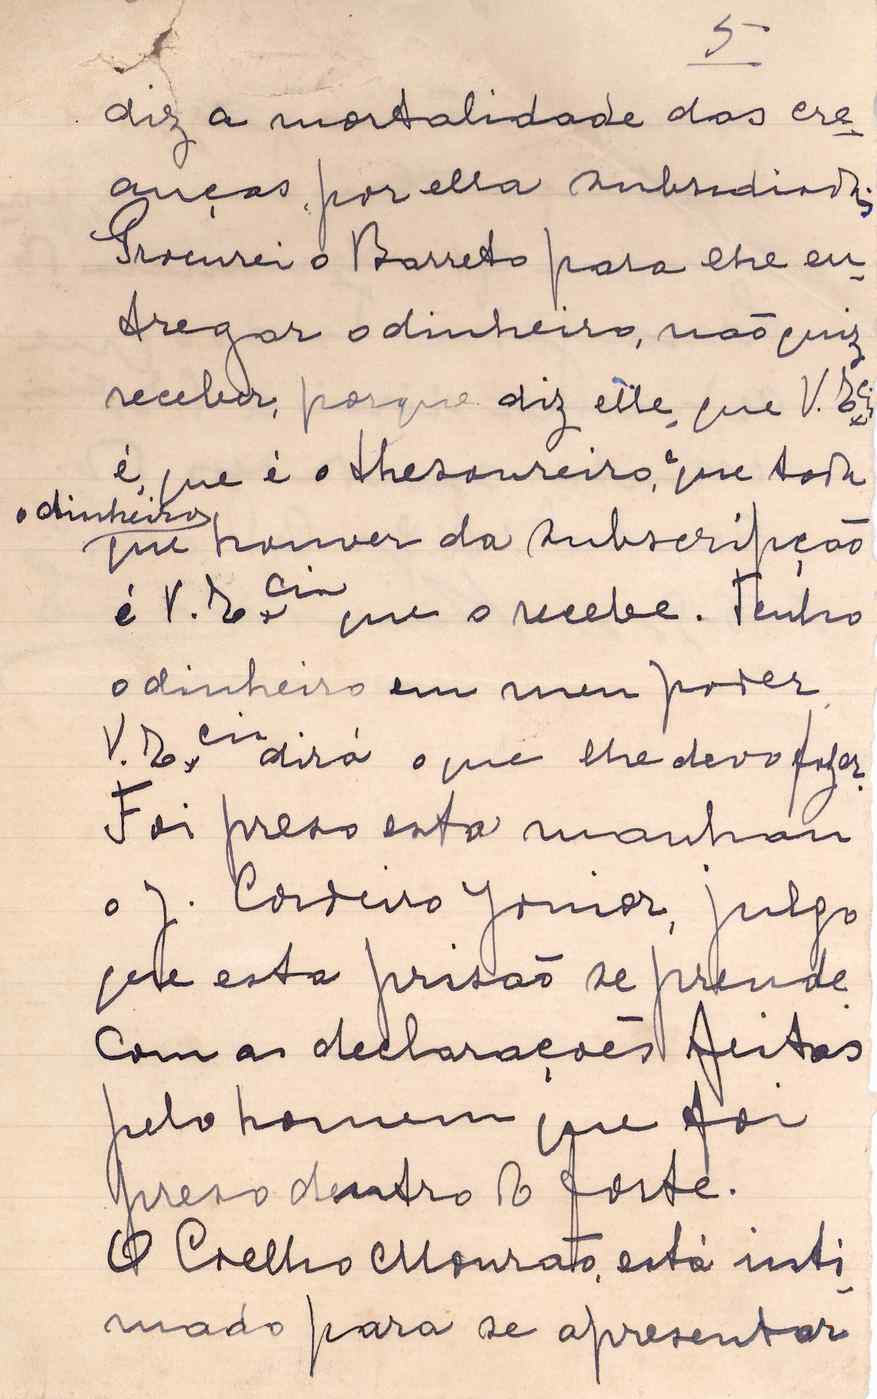 5
diz a mortalidade das cre-
anças, por ella subsidiadas
Procurei o Barreto para lhe en-
tregar o dinheiro, não quiz
receber, porque diz elle, que V. Ex.cia
é, que é o thesoureiro, e que todo
o dinheiro
que houver da subscripção
é V. Ex.cia que o recebe. Tenho
o dinheiro em meu poder
V. Ex.cia dirá o que lhe devo fazer.
Foi preso esta manhan
o J. Cordeiro Junior, julgo
que esta prisão se prende
com as declarações feitas
pelo homem que foi
preso dentro do forte.
O Coelho Mourão, está inti-
mado para se apresentar